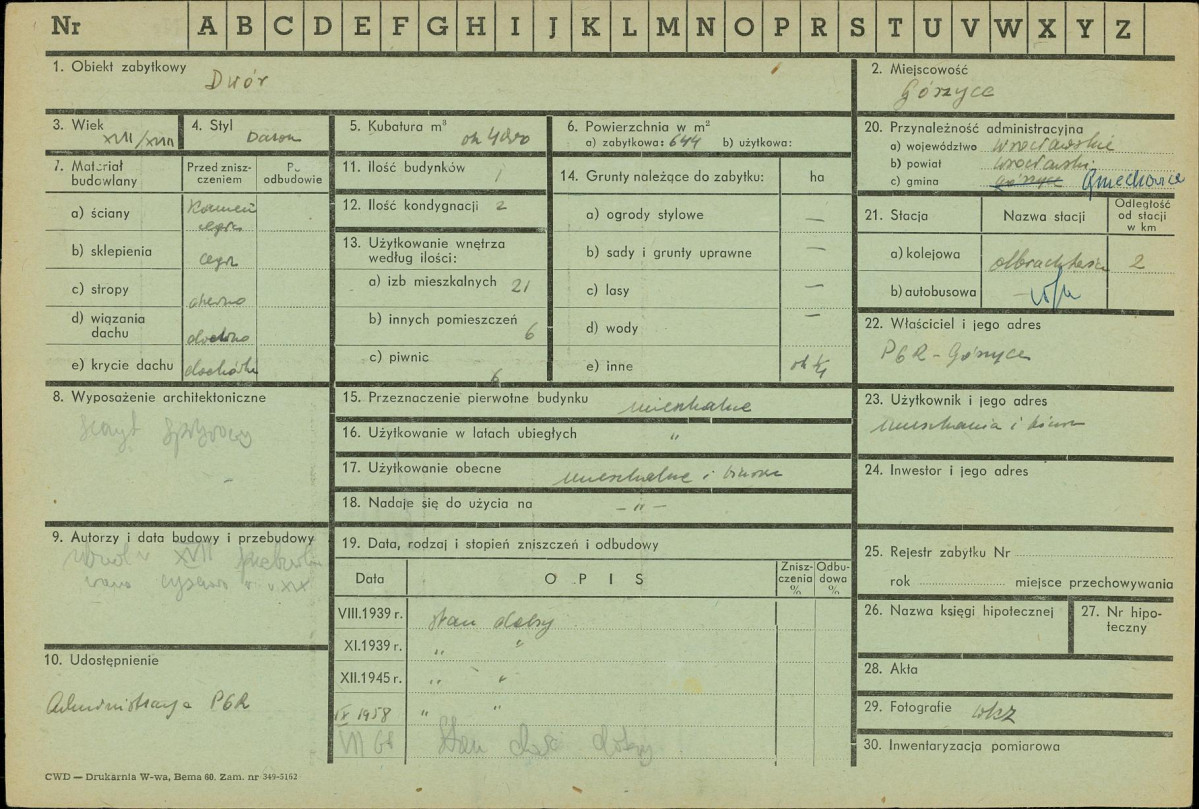 Nr A B C D E F G H I J K L M N O P R S T U V W X Y Z
1. Obiekt zabytkowy Dwór
2. Miejscowość Górzyce
3. Wiek XVII/XVIII
4. Styl barok
5. Kubatura m³ ok 4950
6. Powierzchnia w m²
a) zabytkowa: 644 b) użytkowa:
20. Przynależność administracyjna
a) województwo wrocławskie
b) powiat wrocławski
c) gmina Górzyce Gniechowice
7. Materiał budowlany
Przed zniszczeniem
Po odbudowie
a) ściany kamień cegła
b) sklepienia cegł
c) stropy drewno
d) wiązania dachu drewno
e) krycie dachu dachówka
11. Ilość budynków 1
12. Ilość kondygnacji 2
13. Użytkowanie wnętrza według ilości:
a) izb mieszkalnych 21
b) innych pomieszczeń 6
c) piwnic 6
14. Grunty należące do zabytku: ha
a) ogrody stylowe —
b) sady i grunty uprawne —
c) lasy —
d) wody —
e) inne ok
21. Stacja Nazwa stacji Odległość od stacji w km
a) kolejowa 2
b) autobusowa
22. Właściciel i jego adres
PGR - Górzyce
8. Wyposażenie architektoniczne
15. Przeznaczenie pierwotne budynku mieszkalne
16. Użytkowanie w latach ubiegłych "
17. Użytkowanie obecne mieszkalne i biura
18. Nadaje się do użycia na - " -
23. Użytkownik i jego adres
mieszkania i biura
24. Inwestor i jego adres
9. Autorzy i data budowy i przebudowy
XVII
XIX
19. Data, rodzaj i stopień zniszczeń i odbudowy
Data OPIS Zniszczenia % Odbudowa %
VIII.1939 r. stan dobry
XI.1939 r. " "
XII.1945 r. " "
IX 1958 " "
Stan dość dobry
25. Rejestr zabytku Nr
rok miejsce przechowywania
26. Nazwa księgi hipotecznej
27. Nr hipoteczny
10. Udostępnienie
Administracja PGR
28. Akta
29. Fotografie WKZ
30. Inwentaryzacja pomiarowa
CWD — Drukarnia W-wa, Bema 60. Zam. nr 349-5162